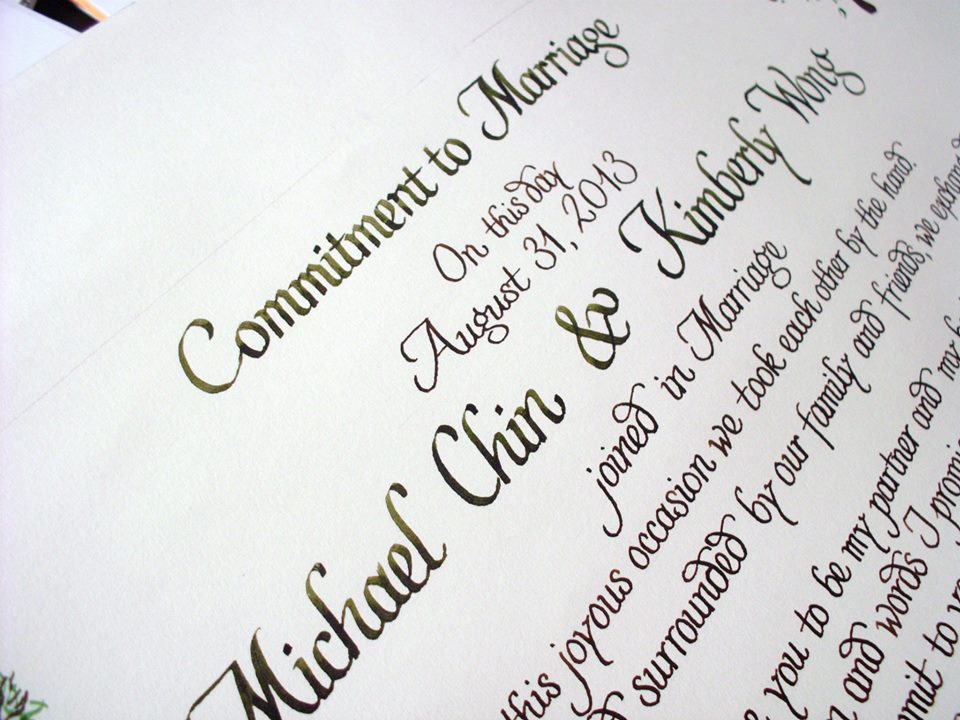 Commitment to Marriage
On this day
August 31, 2013
Michael Chin & Kimberly Wong
joined in Marriage
this joyous occasion we took each other by the hand.
surrounded by our family and friends, we
you to be my partner and my
and words I
to